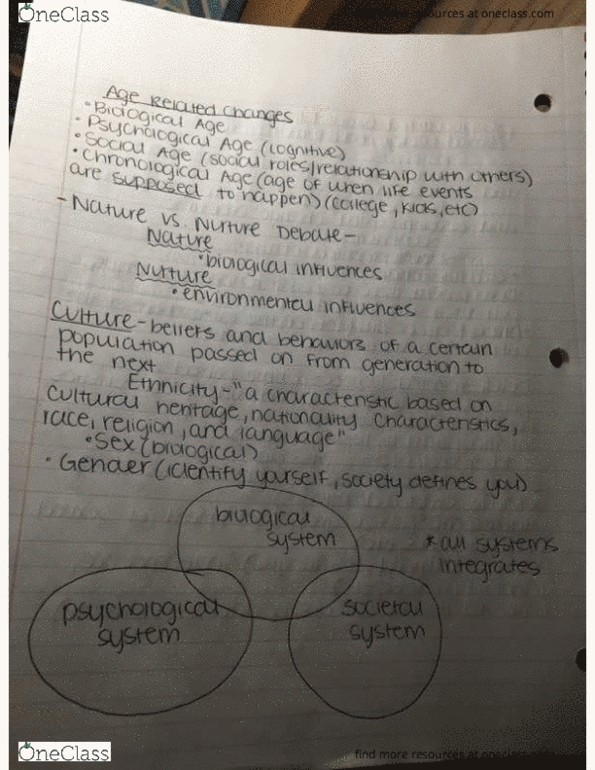 OneClass
resources at oneclass.com
Age Related Changes
• Biological Age
• Psychological Age (cognitive)
• Social Age (social roles/relationship with others)
• Chronological Age (age of when life events
are supposed to happen) (college, kids, etc)
- Nature vs. Nurture Debate -
Nature
• biological influences
Nurture
• environmental influences
Culture - beliefs and behaviors of a certain
population passed on from generation to
the next
Ethnicity - "a characteristic based on
cultural heritage, nationality characteristics,
race, religion, and language"
• Sex (biological)
• Gender (identify yourself, society defines you)
biological
system
* all systems
integrates
psychological
system
societal
system
OneClass
find more resources at oneclass.com